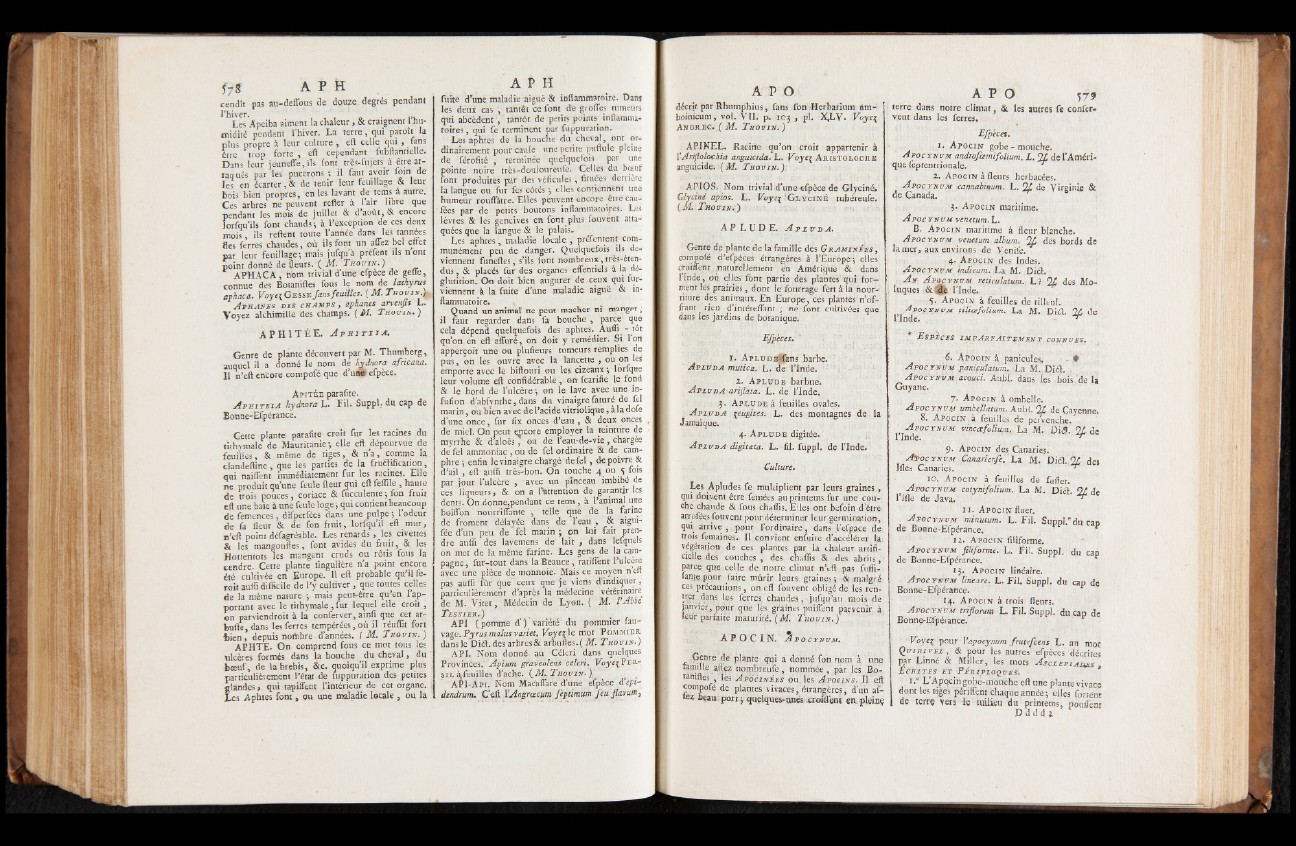 578 APH
cendît pas au-dessous de douze degrés pendant
l'hiver.
Les Apeiba aiment la chaleur, & craignent l'hu-
midité pendant l'hiver. La terre, qui paroît la
plus propre à leur culture, est celle qui, sans
être trop forte, est cependant substantielle.
Dans leur jeunesse, ils sont très-sujets à être at-
taqués par les pucerons; il faut avoir soin de
les en écarter, & de tenir leur feuillage & leur
bois bien propres, en les lavant de tems à autre.
Ces arbres ne peuvent rester à l'air libre que
pendant les mois de juillet & d'août, & encore
lorsqu'ils sont chauds; à l'exception de ces deux
mois, ils restent toute l'année dans les tannées
des serres chaudes, où ils font un assez bel effet
par leur feuillage; mais jusqu'à présent ils n'ont
point donné de fleurs. (M. THOUIN.)
APHACA, nom trivial d'une espèce de gesse,
connue des Botanistes sous le nom de lathyrus
aphaca. Voyez GESSE sans feuilles. (M. THOUIN.)
APHANES DES CHAMPS, aphanes arvensis L.
Voyez alchimille des champs. (M. THOUIN.)
APHITÉE. APHITEIA.
Genre de plante découvert par M. Thumberg,
auquel il a donné le nom de hydnora africana.
Il n'est encore composé que d'une espèce.
APITÉE parasite.
APHITEIA hydnora L. Fil. Suppl. du cap de
Bonne-Espérance.
Cette plante parasite croît sur les racines du
tithymale de Mauritanie; elle est dépourvue de
feuilles, & même de tiges, & n'a, comme la
clandestine, que les parties de la fructification,
qui naissent immédiatement sur les racines. Elle
ne produit qu'une seule fleur qui est sessile, haute
de trois pouces, coriace & succulente; son fruit
est une baie à une seule loge, qui contient beaucoup
de semences, dispersées dans une pulpe; l'odeur
de sa fleur & de son fruit, lorsqu'il est mur,
n'est point désagréable. Les renards, les civettes
& les mangoustes, sont avides du fruit, & les
Hottentots les mangent cruds ou rôtis sous la
cendre. Cette plante singulière n'a point encore
été cultivée en Europe. Il est probable qu'il se-
roit aussi difficile de l'y cultiver, que toutes celles
de la même nature; mais peut-être qu'en l'ap-
portant avec le tithymale, sur lequel elle croît,
on parviendroit à la conserver, ainsi que cet ar-
buste, dans les serres tempérées, où il réussit fort
bien, depuis nombre d'années. (M. THOUIN.)
APHTE. On comprend sous ce mot tous les
ulcères formés dans la bouche du cheval, du
bœuf, de la brebis, &c. quoiqu'il exprime plus
particulièrement l'état de suppuration des petites
glandes, qui tapissent l'intérieur de cet organe.
Les Aphtes sont, ou une maladie locale, ou la
APH
suite d'une maladie aiguë & inflammatoire. Dans
les deux cas, tantôt ce sont de grosses tumeurs
qui abcèdent, tantôt de petits points inflamma-
toires, qui se terminent par suppuration.
Les aphtes de la bouche du cheval, ont or-
dinairement pour cause une petite pustule pleine
de sérosité, terminée quelquefois par une
pointe noire très-douloureuse. Celles du bœuf
sont produites par des vésicules, situées derrière
la langue ou sur ses côtés; elles contiennent une
humeur roussâtre. Elles peuvent encore être cau-
sées par de petits boutons inflammatoires. Les
lèvres & les gencives en sont plus souvent atta-
quées que la langue & le palais.
Les aphtes, maladie locale, présentent com-
munément peu de danger. Quelquefois ils de-
viennent funestes, s'ils sont nombreux, très-éten-
dus, & placés sur des organes essentiels à la dé-
glutition. On doit bien augurer de ceux qui sur-
viennent à la suite d'une maladie aiguë & in-
flammatoire.
Quand un animal ne peut macher ni manger;
il faut regarder dans sa bouche, parce que
cela dépend quelquefois des aphtes. Aussi-tôt
qu'on en est assuré, on doit y remédier. Si l'on
apperçoit une ou plusieurs tumeurs remplies de
pus, on les ouvre avec la lancette, ou on les
emporte avec le bistouri ou les cizeaux; lorsque
leur volume est considérable, on scarifie le fond
& le bord de l'ulcère; on le lave avec une in-
fusion d'absynthe, dans du vinaigre saturé de sel
marin, ou bien avec de l'acide vitriolique, à la dose
d'une once, sur six onces d'eau, & deux onces
de miel. On peut encore employer la teinture de
myrrhe & d'aloès, ou de l'eau-de-vie, chargée
de sel ammoniac, ou de sel ordinaire & de cam-
phre; enfin le vinaigre chargé de sel, de poivre &
d'ail, est aussi très-bon. On touche 4 ou 5 fois
par jour l'ulcère, avec un pinceau imbibé de
ces liqueurs, & on a l'attention de garantir les
dents. On donne, pendant ce tems, à l'animal une
boisson nourrissante, telle que de la farine
de froment délayée dans de l'eau, & aigui-
sée d'un peu de sel marin; on lui fait pren-
dre aussi des lavemens de lait, dans lesquels
on met de la même farine. Les gens de la cam-
pagne, sur-tout dans la Beauce, ratissent l'ulcère
avec une pièce de monnoie. Mais ce moyen n'est
pas aussi sûr que ceux que je viens d'indiquer,
particulièrement d'après la médecine vétérinaire
de M. Vitet, Médecin de Lyon. (M. l'Abbé
TESSIER.)
API (pomme d') variété du pommier sau-
vage. Pyrus malus variet. Voyez le mot POMMIER
dans le Dict. des arbres & arbustes. (M. THOUIN.)
API. Nom donné au Céleri dans quelques
Provinces. Apium graveolens celeri. Voyez PER-
SIL à feuilles d'ache. (M. THOUIN.)
API-API. Nom Macassare d'une espèce d'epi-
dendrum. C'est l'Angræcum septimum seu flavum,
APO
décrit par Rhumphius, dans son Herbarium am-
boinicum, vol. VII. p. 103, pl. XLV. Voyez
ANGREC. (M. THOUIN.)
APINEL. Racine qu'on croit appartenir à
l'Aristolochia anguicida. L. Voyez ARISTOLOCHE
anguicide. (M. THOUIN.)
APIOS. Nom trivial d'une espèce de Glyciné.
Glyciné apios. L. Voyez GLYCINE tubéreuse.
(M. THOUIN.)
APLUDE. APLUDA.
Genre de plante de la famille des GRAMINÉES,
composé d'espèces étrangères à l'Europe; elles
croissent naturellement en Amérique & dans
l'Inde, où elles font partie des plantes qui for-
ment les prairies, dont le fourrage sert à la nour-
riture des animaux. En Europe, ces plantes n'of-
frant rien d'intéressant; ne sont cultivées que
dans les jardins de botanique.
Espèces.
1. APLUDE sans barbe.
APLUDA mutica. L. de l'Inde.
2. APLUDE barbue.
APLUDA aristata. L. de l'Inde.
3. APLUDE à feuilles ovales.
APLUDA zeugites. L. des montagnes de la
Jamaique.
4. APLUDE digitée.
APLUDA digitata. L. fil. suppl. de l'Inde.
Culture.
Les Apludes se multiplient par leurs graines,
qui doivent être semées au printems sur une cou-
che chaude & sous chassis. Elles ont besoin d'être
arrosées souvent pour déterminer leur germination,
qui arrive, pour l'ordinaire, dans l'espace de
trois semaines. Il convient ensuite d'accélérer la
végétation de ces plantes par la chaleur artifi-
cielle des couches, des chassis & des abris,
parce que celle de notre climat n'est pas suffi-
sante pour faire mûrir leurs graines; & malgré
ces précautions, on est souvent obligé de les ren-
trer dans les serres chaudes, jusqu'au mois de
janvier, pour que les graines puissent parvenir à
leur parfaite maturité. (M. THOUIN.)
APOCIN. APOCYNUM.
Genre de plante qui a donné son nom à une
famille assez nombreuse, nommée, par les Bo-
tanistes, les APOCINÉES ou les APOCINS. Il est
composé de plantes vivaces, étrangères, d'un as-
sez beau port; quelques-unes croissent en pleine
APO 579
terre dans notre climat, & les autres se conser-
vent dans les serres.
Espèces.
1. APOCIN gobe-mouche.
APOCYNUM androsæmifolium. L. ♃ de l'Améri-
que septentrionale.
2. APOCIN à fleurs herbacées.
APOCYNUM cannabinum. L. ♃ de Virginie &
de Canada.
3. APOCIN maritime.
APOCYNUM venetum. L.
B. APOCIN maritime à fleur blanche.
APOCYNUM venetum album. ♃ des bords de
la mer, aux environs de Venise.
4. APOCIN des Indes.
APOCYNUM indicum. La M. Dict.
AN APOCYNUM reticulatum. L? ♃ des Mo-
luques & de l'Inde.
5. APOCIN à feuilles de tilleul.
APOCYNUM tiliæfolium. La M. Dict. ♃ de
l'Inde.
* ESPÈCES IMPARFAITEMENT CONNUES.
6. APOCIN à panicules.
APOCYNUM paniculatum. La M. Dict.
APOCYNUM acouci. Aubl. dans les bois de la
Guyane.
7. APOCIN à ombelle.
APOCYNUM umbellatum. Aubl. ♃ de Cayenne.
8. APOCIN à feuilles de pervenche.
APOCYNUM vincæfolium. La M. Dict. ♃ de
l'Inde.
9. APOCIN des Canaries.
APOCYNUM Canariense. La M. Dict. ♃ des
Isles Canaries.
10. APOCIN à feuilles de fustet.
APOCYNUM cotynifolium. La M. Dict. ♃ de
l'Isle de Java.
11. APOCIN fluet.
APOCYNUM minutum. L. Fil. Suppl. du cap
de Bonne-Espérance.
12. APOCIN filiforme.
APOCYNUM filiforme. L. Fil. Suppl. du cap
de Bonne-Espérance.
13. APOCIN linéaire.
APOCYNUM lineare. L. Fil. Suppl. du cap de
Bonne-Espérance.
14. APOCIN à trois fleurs.
APOCYNUM triflorum L. Fil. Suppl. du cap de
Bonne-Espérance.
Voyez pour l'apocynum frutescens L. au mot
QUIRIVEL, & pour les autres espèces décrites
par Linné & Miller, les mots ASCLEPIADES,
ÉCHITES ET PÉRIPLOQUES.
1.° L'Apocin gobe-mouche est une plante vivace
dont les tiges périssent chaque année; elles sortent
de terre vers le milieu du printems, poussent
Dddd 2